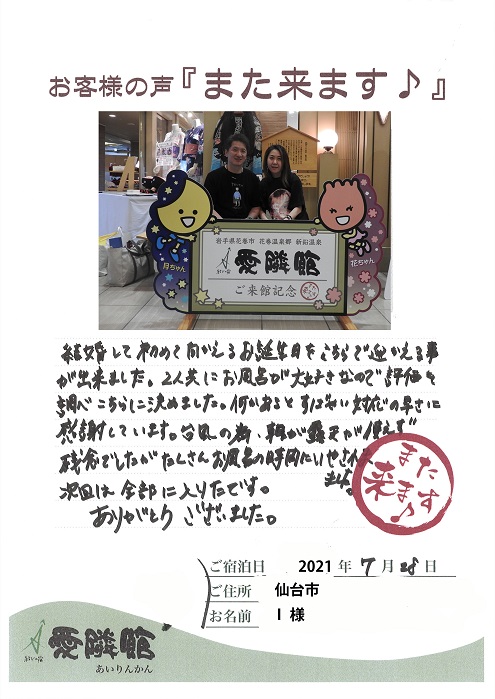 お客様の声『また来ます♪』
岩手県花巻市 花巻温泉郷 新鉛温泉
愛隣館
ご来館記念
月ちゃん
花ちゃん
結婚して初めて向かえるお誕生日をこちらで迎かえる事
が出来ました。2人共にお風呂が大好きなので評価を
調べこちらに決めました。何かあると すばやい対応の早さに
感謝しています。台風の為、朝が露天が使えず
残念でしたがたくさんお風呂の時間にいやされ
ました。
次回は全部に入りたです。
ありがとうございました。
また
来ます♪
ご宿泊日 2021年7月28日
ご住所 仙台市
お名前 I 様
愛隣館
あいりんかん